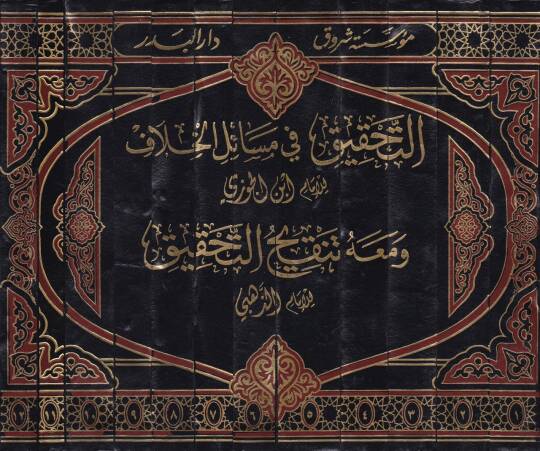 مؤسسة شروق دار البدر
التَّحْقِيقُ فِي مَسَائِلِ الخِلَافِ
لِلإِمَامِ ابن الجوزي
وَمَعَهُ تَنْقِيحُ التَّحْقِيقِ
لِلإِمَامِ الذهبي
١ ٢ ٣ ٤ ٥ ٦ ٧ ٨ ٩ ١٠ ١١ ١٢